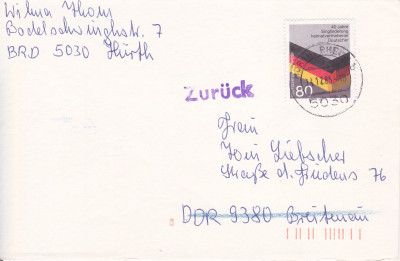 Wilma Thom
Bodelschwinghstr. 7
BRD 5030 Hürth
40 Jahre
Eingliederung
heimatvertriebener
Deutscher
80
5030
Zurück
Frau
Liebscher
Straße d. Friedens 76
DDR 9380 Breitenau